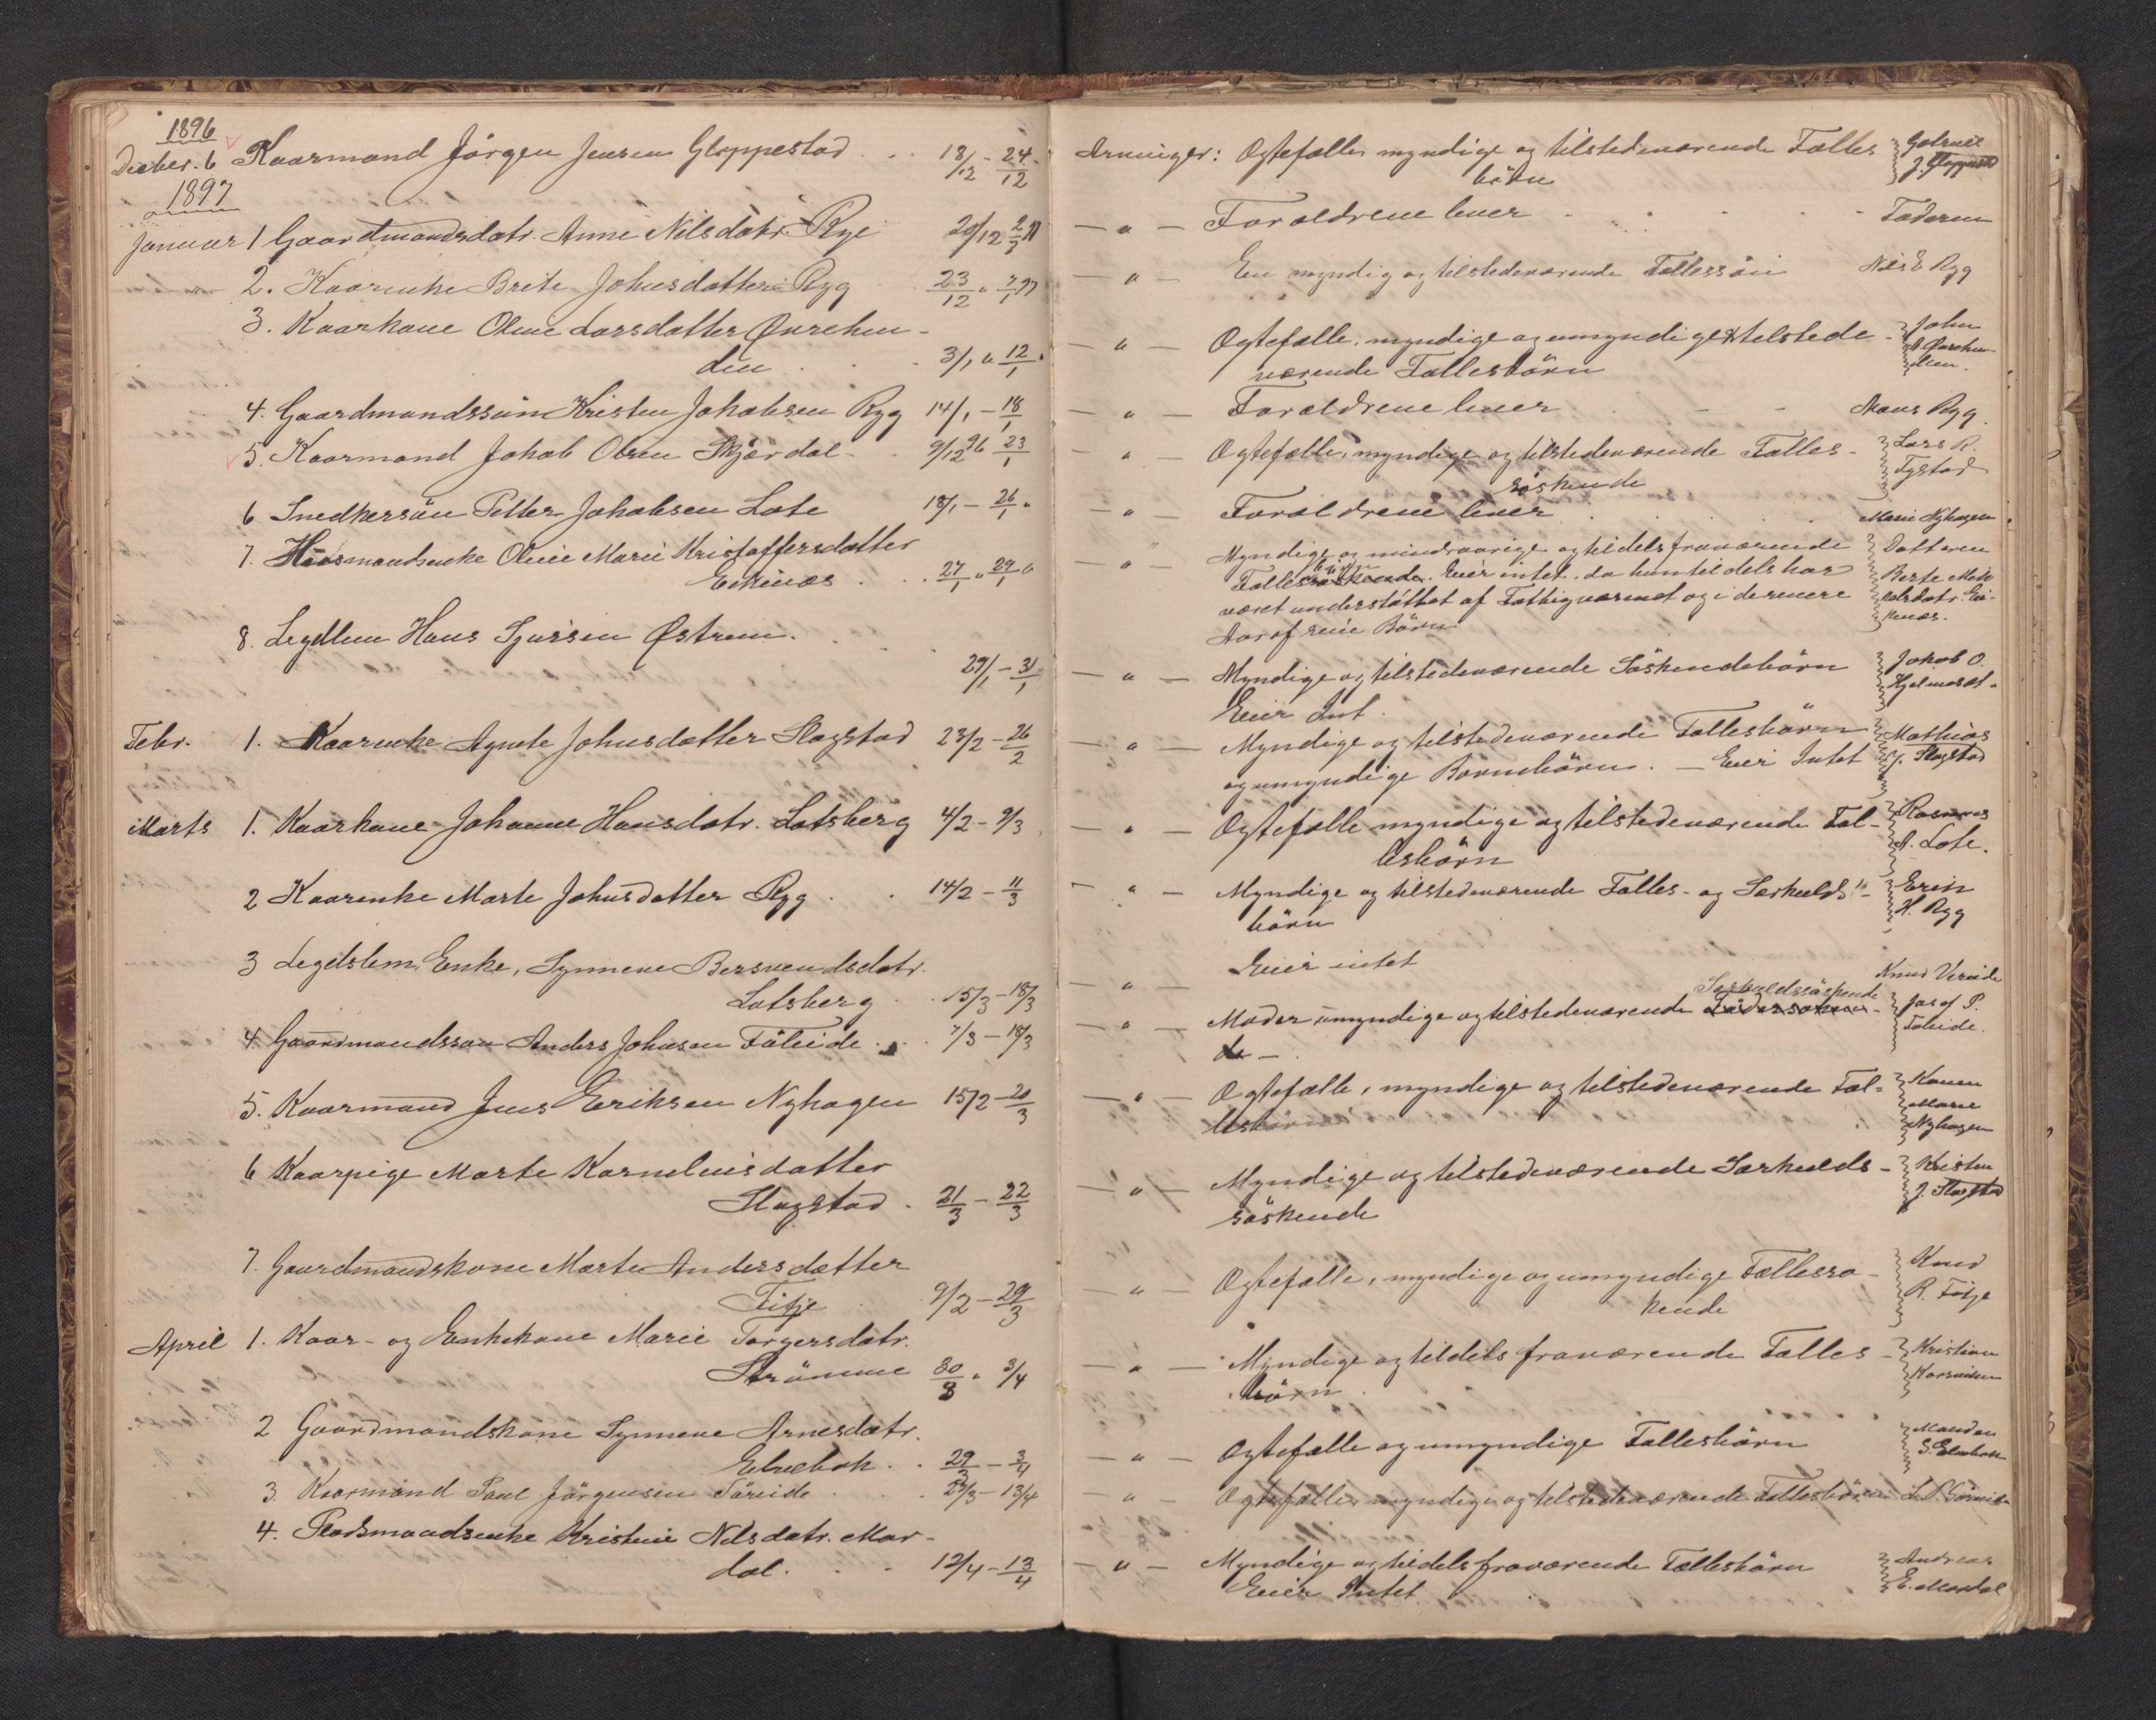 1896
Decber. 6 Kaarmand Jörgen Jensen Gloppestad 18/12 - 24/12
1897
Januar 1 Gaardmandsdatr. Anne Nilsdatr. Ryg 20/12 2/1
2. Kaarenke Brite Johnsdatter Ryg 23/12 " 7/1 97
3. Kaarkone Oline Larsdatter Øvrehun-
den 3/1 " 12/1
4. Gaardmandssön Kristen Jakobsen Ryg 14/1 - 18/1
5. Kaarmand Jakob Olsen Skjærdal 9/12 96 23/1
6 Snedkersön Petter Jakobsen Lote 18/1 - 26/1
7. Husmandsenke Oline Marie Kristoffersdatter
Eikenæs 27/1 " 29/1
8. Legdlem Hans Sjursen Østrem.
29/1 - 31/1
Febr. 1. Kaarenke Agnete Johnsdatter Slagstad 23/2 - 26/2
Marts 1. Kaarkone Johanne Hansdatr. Lotsberg 4/2 - 9/3
2 Kaarenke Marte Johnsdatter Ryg 14/2 - 11/3
3 Legdslem, Enke, Synneve Bersvendsdatr.
Lotsberg 15/3 - 18/3
4. Gaardmandssøn Anders Johnsen Föleide 7/3 - 18/3
5. Kaarmand Jens Eriksen Nyhagen 15/2 - 20/3
6 Kaarpige Marte Korneliusdatter
Slagstad 21/3 - 22/3
7. Gaardmandskone Marte Andersdatter
Fitje 9/2 - 29/3
April 1. Kaar- og Enkekone Marie Torgersdatr.
Strömme 30/3 " 3/4
2 Gaardmandskone Synneve Arnesdatr.
Elvebak 29/3 - 3/4
3. Kaarmand Paul Jörgensen Söreide 23/3 - 13/4
4. Pladsmandsenke Kristine Nilsdatr. Mar-
dal. 12/4 - 13/4
Arvinger: Ægtefælle, myndige og tilstedeværende Fælles
börn
Gabriel
J. Gloppestad
— " — Forældrene lever Faderen
— " — En myndig og tilstedeværende Fællessön Nils E Ryg
— " — Ægtefælle, myndige og umyndige tilstede-
værende Fællesbörn
John
A. Øvrehun-
den.
— " — Forældrene lever Mons Ryg
— " — Ægtefælle, myndige og tilstedeværende Fælles-
söskende
Lars R.
Tystad
— " — Forældrene lever Marie Nyhagen
— " — Myndige og mindreaarige og tildels fraværende
Fællesbörn. Eier intet, da hun tildels har
været understöttet af Fattigvæsenet og i de senere
Aar af sine Börn
Datteren
Berte
Eikenæs.
— " — Myndige og tilstedeværende Söskendebörn
Eier Int.
Jakob O.
Hjelmeset
— " — Myndige og tilstedeværende Fællesbörn
og umyndige Barnebörn. — Eier Intet
Mathias
J. Slagstad
— " — Ægtefælle myndige og tilstedeværende Fæl-
lesbörn
Rasmus
A. Lote.
— " — Myndige og tilstedeværende Fælles- og Særkulds-
börn
Erik
H. Ryg
— " — Eier intet Knud Vereide
Særkuldssöskende
— " — Moder umyndige og tilstedeværende
de —
Josef P.
Föleide.
— " — Ægtefælle, myndige og tilstedeværende Fæl-
lesbörn
Konen
Marie
Nyhagen
— " — Myndige og tilstedeværende Særkulds-
söskende
Kristen
J. Slagstad
— " — Ægtefælle, myndige og umyndige Fællessö-
kende
Knud
R. Fitje
— " — Myndige og tildels fraværende Fælles-
börn.
Kristian
— " — Ægtefælle og umyndige Fællesbörn
Manden
S. Elvebak
— " — Ægtefælle, myndige og tilstedeværende Fællesbörn L. P. Söreide
— " — Myndige og tildels fraværende Fællesbörn
Eier Intet
Andreas
E. Mardal